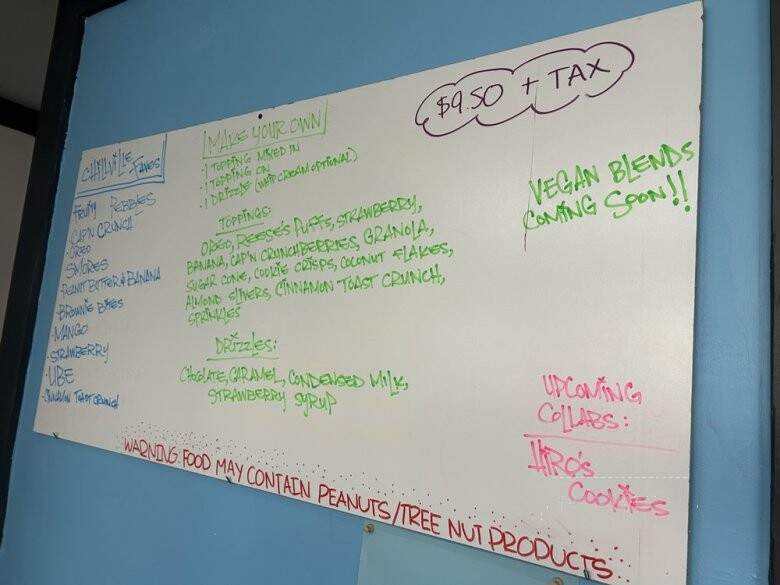 $9.50 + TAX
CHILLVILLE FAVES
FRUITY PEBBLES
CAP'N CRUNCH
·OREO
SMORES
·PEANUT BUTTER & BANANA
·BROWNIE BITES
·MANGO
·STRAWBERRY
·UBE
·CINNAMON TOAST CRUNCH
MAKE YOUR OWN
·1 TOPPING MIXED IN
·1 TOPPING ON
·1 DRIZZLE (WHIP CREAM OPTIONAL)
TOPPINGS:
OREO, REESE'S PUFFS, STRAWBERRY,
BANANA, CAP'N CRUNCHBERRIES, GRANOLA,
SUGAR CONE, COOKIE CRISPS, COCONUT FLAKES,
ALMOND SLIVERS, CINNAMON TOAST CRUNCH,
SPRINKLES
DRIZZLES:
CHOCLATE, CARAMEL, CONDENSED MILK,
STRAWBERRY SYRUP
VEGAN BLENDS
COMING SOON!!
UPCOMING
COLLABS:
HIRO'S
COOKIES
WARNING FOOD MAY CONTAIN PEANUTS/TREE NUT PRODUCTS